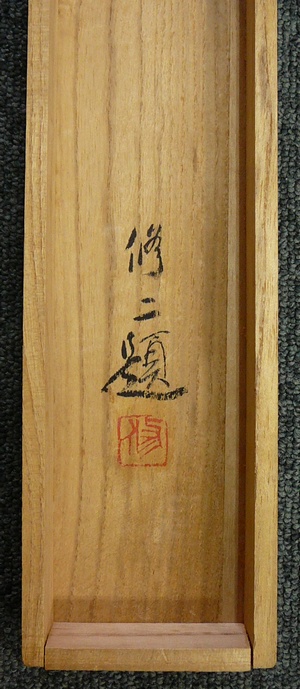 修二題
修